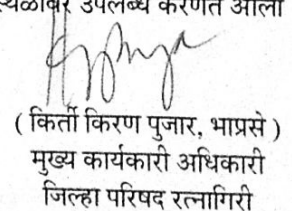 स्थळावर उपलब्ध करणेत आला
( किर्ती किरण पुजार, भाप्रसे )
मुख्य कार्यकारी अधिकारी
जिल्हा परिषद रत्नागिरी